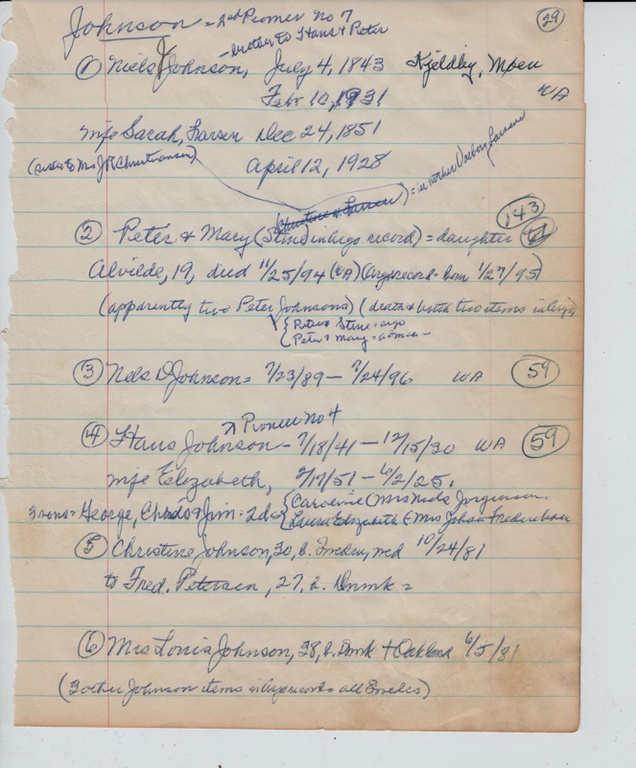 Johnson = 2nd Pioneer No 7
29
- brother to Hans & Peter
① Niels J Johnson, July 4, 1843 Kjeldby, Moen
Feb 10, 1931 WA
Wife Sarah, Larsen Dec 24, 1851
(sister to Mrs J.P. Christiansen) April 12, 1928
(Christine & Larsen) = mother Larsen
143
② Peter & Mary (Stine) in argo. record) = daughter
Alvilde, 19, died 11/25/94 (WA) (argo record - born 1/27/95)
(apparently two Peter Johnsons) (death & birth two items in argo)
{ Peter & Stine = argo
( Peter & Mary =
③ Nels D Johnson = 7/23/89 - 7/24/96 WA 59
Pioneer No 4
④ Hans Johnson - 7/18/41 - 12/15/30 WA 59
wife Elizabeth, 2/17/51 - 6/2/25.
3 sons = George, & Jim: 2 d = { Caroline (Mrs Niels Jorgensen
Laura Elizabeth (= Mrs John
⑤ Christine Johnson, 30, b. Sweden, med 10/24/81
to Fred. Petersen, 27, b. Dnmk =
⑥ Mrs Louis Johnson, 38, b. Dmk + Oakland 6/5/81
(3 other Johnson items in argo records all Swedes)